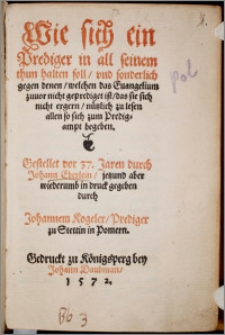 Wie sich ein
Prediger in all seinem
thun halten soll / vnd sonderlich
gegen denen / welchen das Euangelium
zuuor nicht geprediget ist / das sie sich
nicht ergern / nützlich zu lesen
allen so sich zum Predig-
ampt begeben.
Gestellet vor 37. Jaren durch
Johann Eberlein / jetzund aber
wiederumb in druck gegeben
durch
Johannem Kogeler / Prediger
zu Stettin in Pomern.
Gedruckt zu Königsperg bey
Johann Daubman /
1572.